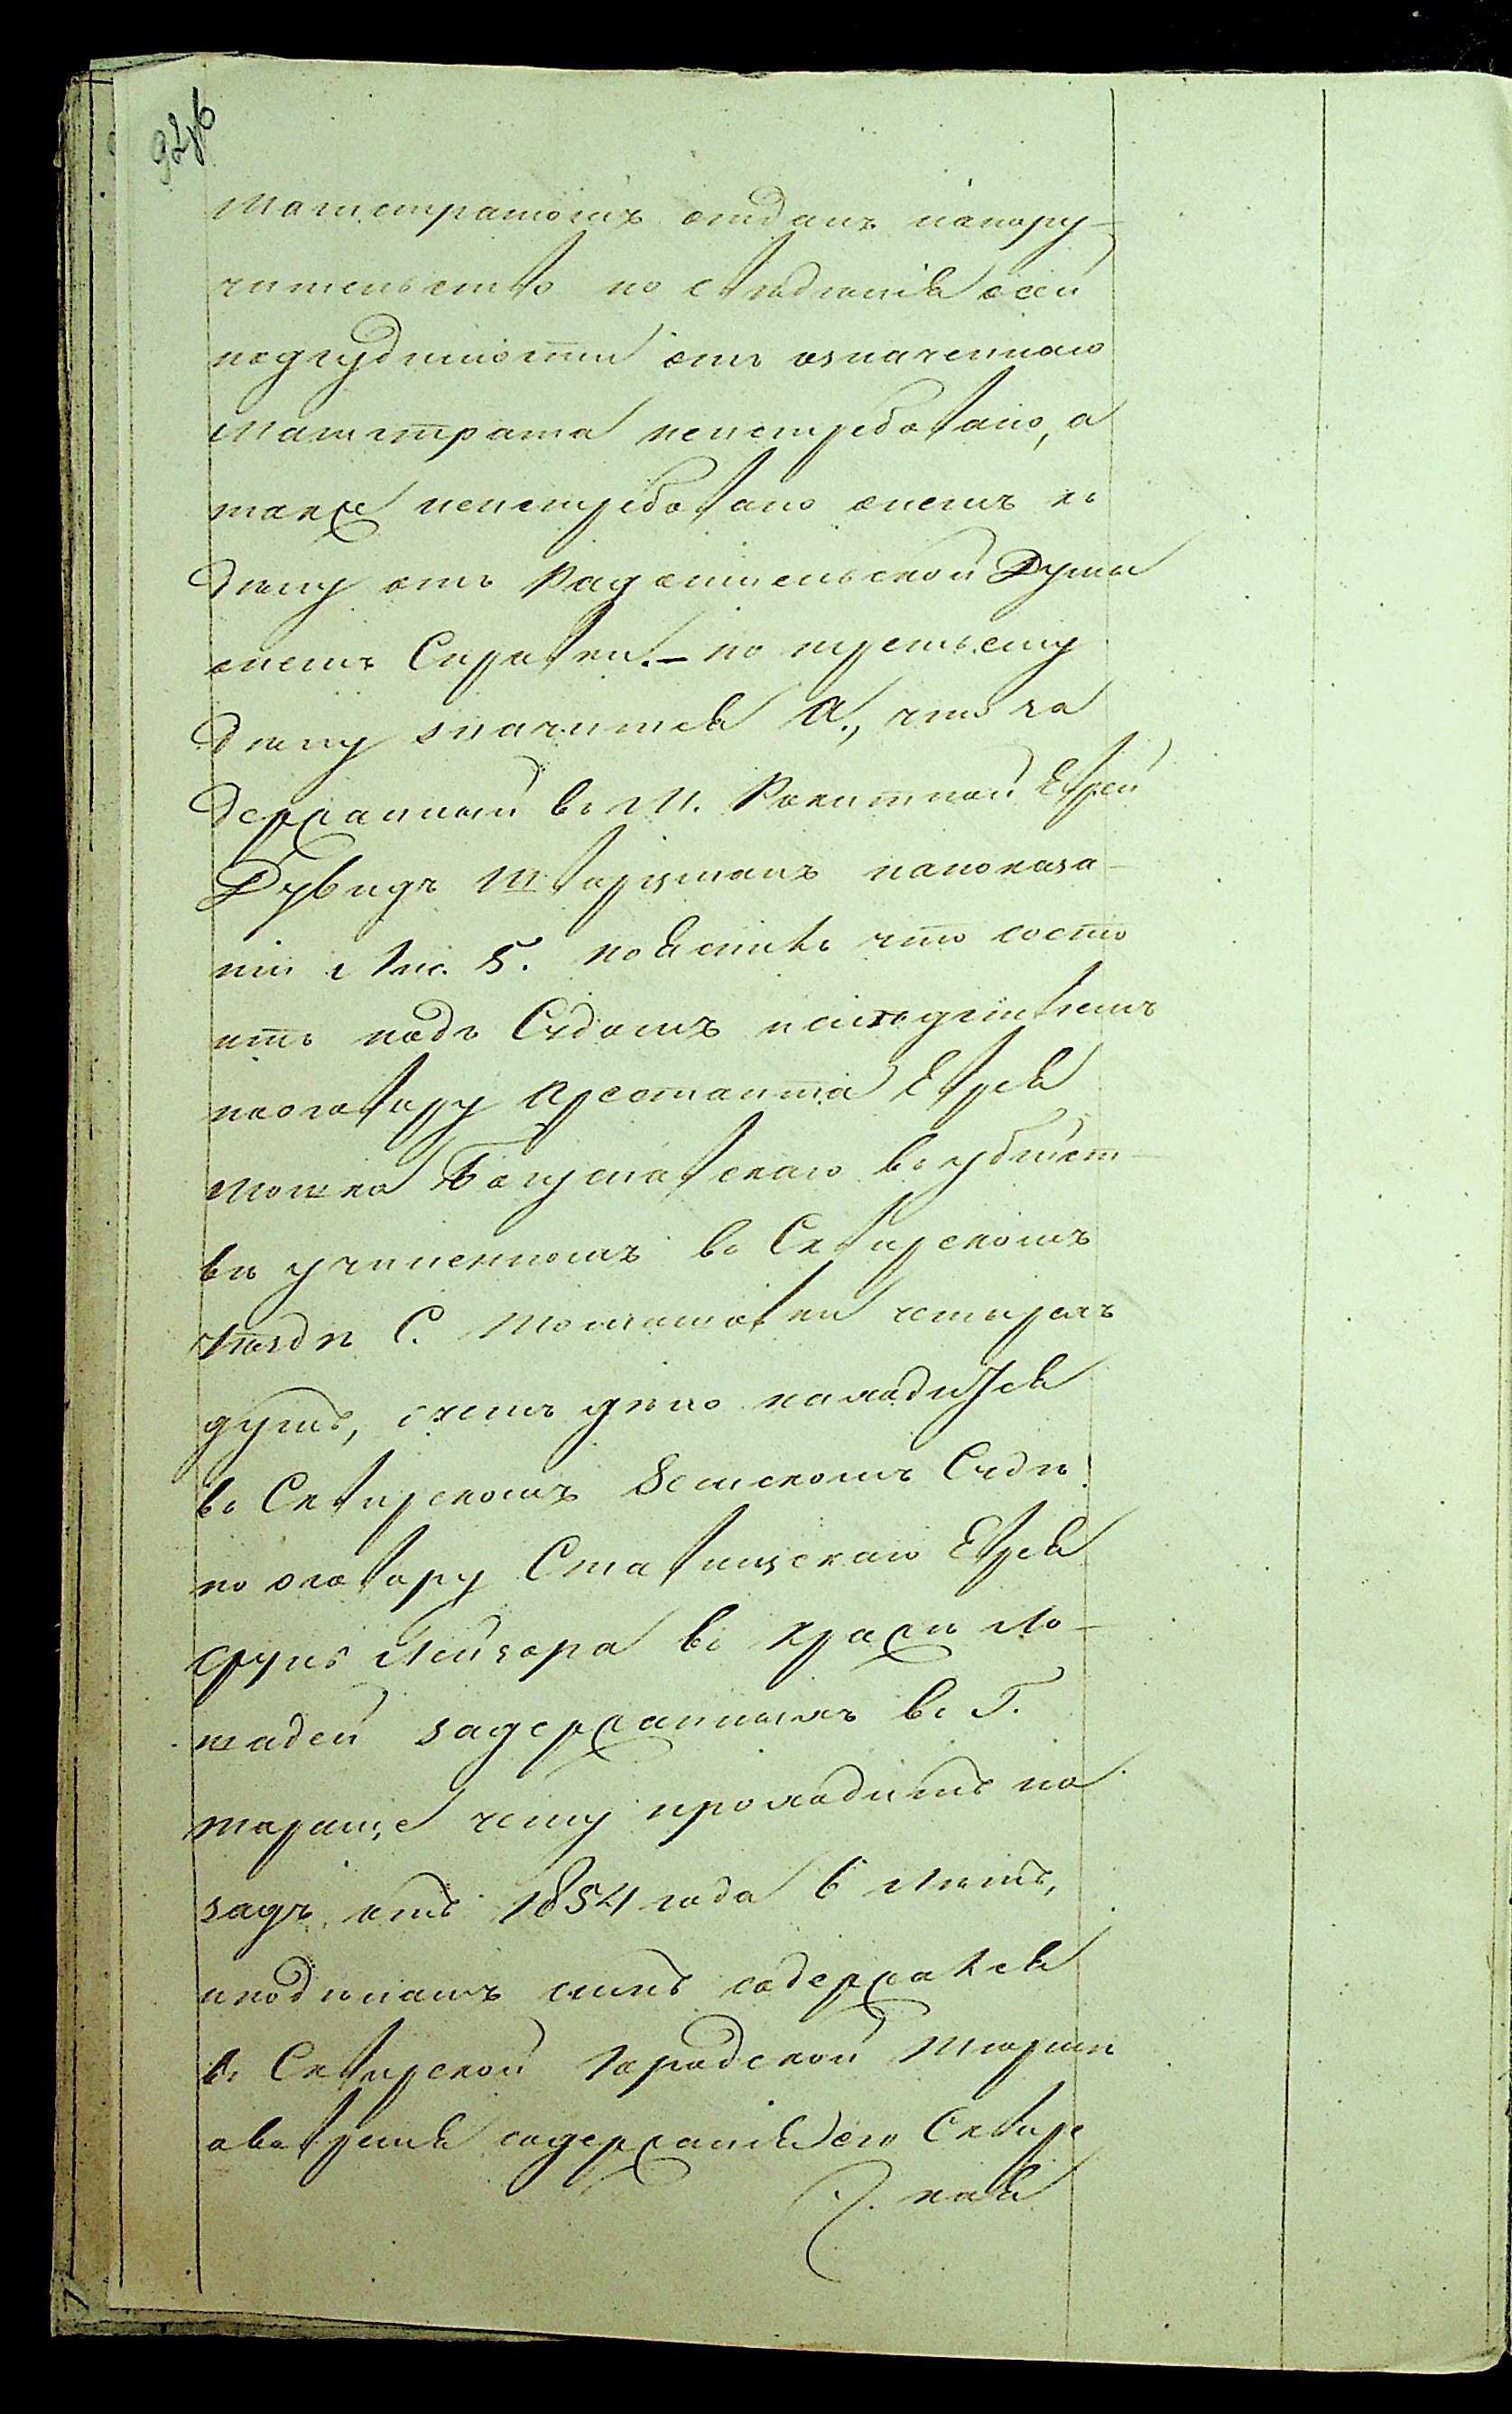 924б
Магистратомъ отданъ напору-
чительство но свѣдѣнія осей
подсудимости отъ означеннаго
Магистрата неистребовано, а
также неистребовано онемъ по
дѣлу отъ Радомысльской Думы
онемъ Справки. – по третьему
дѣлу значится А., что за
держанный въ М. Ракитной Еврей
Дувидъ Шварцманъ напоказа-
ніи Лис. 5. пояснивъ что состо
итъ подъ Судомъ и слѣдствіемъ
пооговору арестанта Еврея
Мошка Богуславскаго въ убійст-
вѣ учиненномъ въ Сквирскомъ
уѣздѣ С. Томашовки четырехъ
душъ, очемъ дѣло находится
въ Сквирскомъ Земскомъ Судѣ
по оговору Ставищскаго Еврея
Сруль Лейзора въ кражѣ ло-
шадей задержанныхъ въ Г.
Таращѣ чему проходитъ на
задъ отъ 1854 года 6 лѣтъ,
иподѣламъ симъ содержался
въ Сквирской Городской Тюрьмѣ
ововремя содержанія его Сквирс
кая